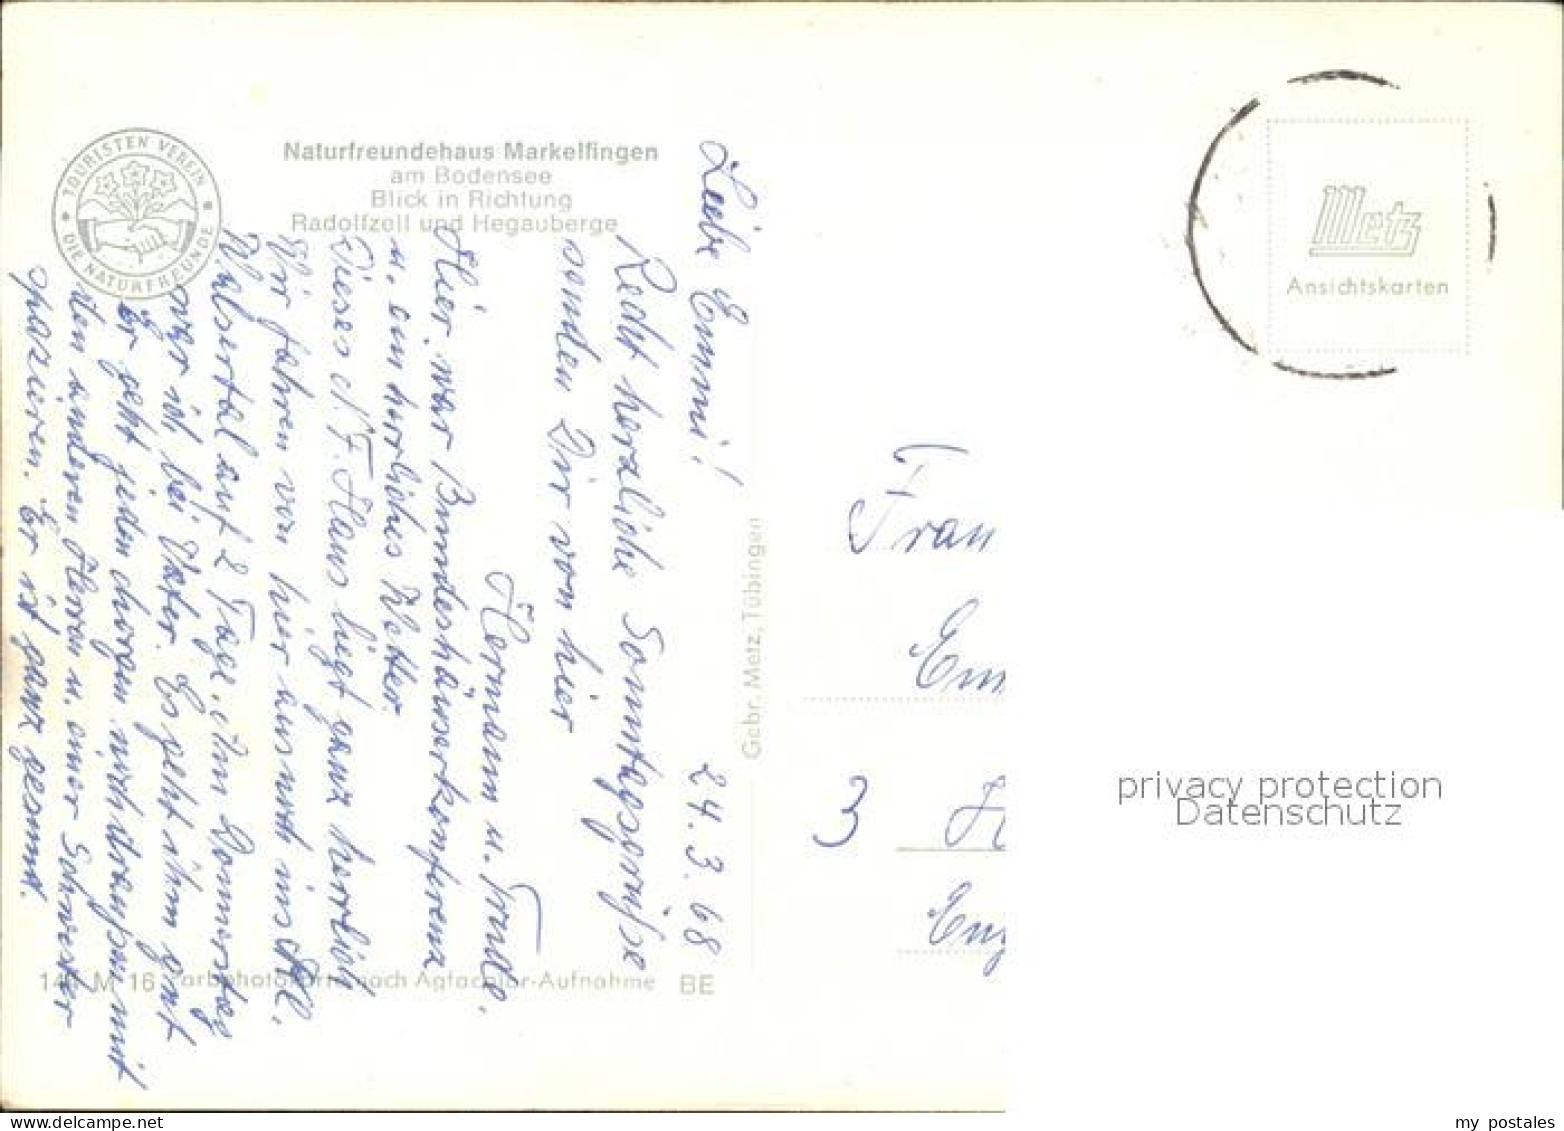 TOURISTEN VEREIN
DIE NATURFREUNDE
Naturfreundehaus Markelfingen
am Bodensee
Blick in Richtung
Radolfzell und Hegauberge
Liebe Emmi! 24.3.68
Recht herzliche Sonntagsgrüsse
senden Dir von hier
Hermann u. Trude.
Hier war Bundeshäuserkonferenz
u. ein herrliches Wetter.
Dieses N.F. Haus liegt ganz herrlich
Wir fahren von hier aus noch ins Kl.
Walsertal auf 2 Tage. Am Donnerstag
war ich bei Vater. Es geht ihm gut
Er geht jeden Morgen nach draussen mit
den anderen Herren u. einer Schwester
spazieren. Er ist ganz gesund.
Gebr. Metz, Tübingen
M 16 Farbphotokarte nach Agfacolor-Aufnahme BE
Metz
Ansichtskarten
Frau
Em
3 H
Enz
privacy protection
Datenschutz
my postales